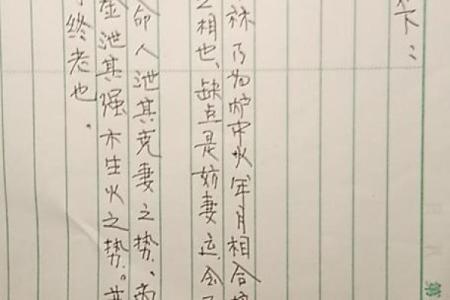 下：
林乃为炉中火年月相合
之相也、缺点是妨妻
命人泄其克妻之势、
金泄其强木生火之势。
终老也.
第